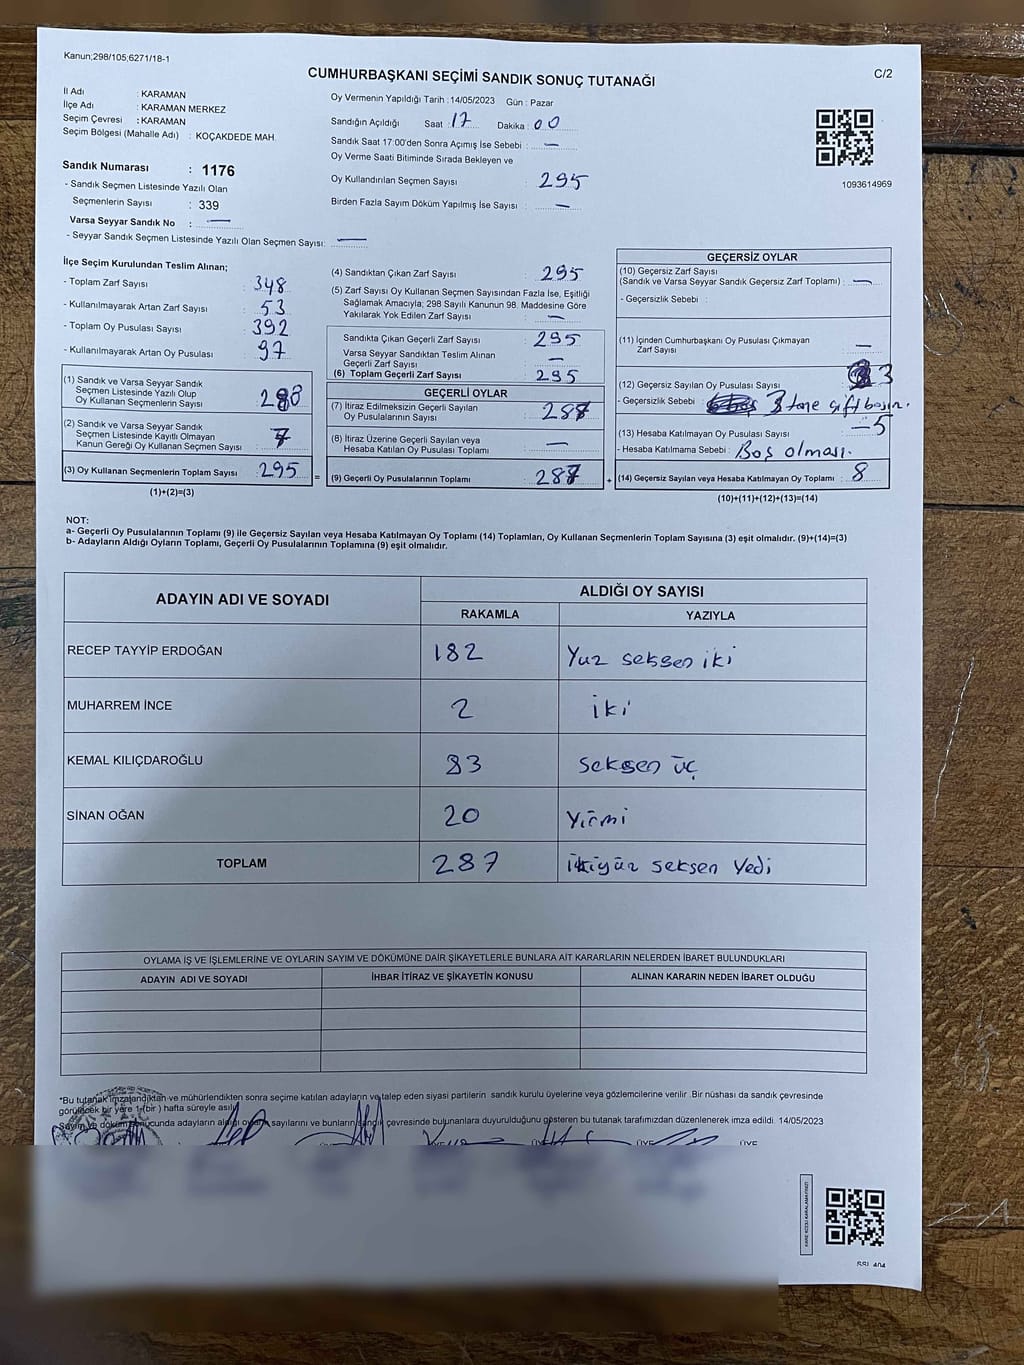 Kanun;298/105;6271/18-1
CUMHURBAŞKANI SEÇİMİ SANDIK SONUÇ TUTANAĞI
C/2
İl Adı : KARAMAN
İlçe Adı : KARAMAN MERKEZ
Seçim Çevresi : KARAMAN
Seçim Bölgesi (Mahalle Adı) : KOÇAKDEDE MAH.
Sandık Numarası : 1176
- Sandık Seçmen Listesinde Yazılı Olan
Seçmenlerin Sayısı : 339
Varsa Seyyar Sandık No : —
- Seyyar Sandık Seçmen Listesinde Yazılı Olan Seçmen Sayısı: —
Oy Vermenin Yapıldığı Tarih : 14/05/2023 Gün : Pazar
Sandığın Açıldığı Saat : 17 Dakika : 00
Sandık Saat 17:00'den Sonra Açımış İse Sebebi : —
Oy Verme Saati Bitiminde Sırada Bekleyen ve
Oy Kullandırılan Seçmen Sayısı : 295
Birden Fazla Sayım Döküm Yapılmış İse Sayısı : —
1093614969
İlçe Seçim Kurulundan Teslim Alınan;
- Toplam Zarf Sayısı : 348
- Kullanılmayarak Artan Zarf Sayısı : 53
- Toplam Oy Pusulası Sayısı : 392
- Kullanılmayarak Artan Oy Pusulası : 97
(1) Sandık ve Varsa Seyyar Sandık
Seçmen Listesinde Yazılı Olup
Oy Kullanan Seçmenlerin Sayısı : 288
(2) Sandık ve Varsa Seyyar Sandık
Seçmen Listesinde Kayıtlı Olmayan
Kanun Gereği Oy Kullanan Seçmen Sayısı : 7
(3) Oy Kullanan Seçmenlerin Toplam Sayısı : 295 =
(1)+(2)=(3)
(4) Sandıktan Çıkan Zarf Sayısı : 295
(5) Zarf Sayısı Oy Kullanan Seçmen Sayısından Fazla İse, Eşitliği
Sağlamak Amacıyla; 298 Sayılı Kanunun 98. Maddesine Göre
Yakılarak Yok Edilen Zarf Sayısı : —
Sandıkta Çıkan Geçerli Zarf Sayısı : 295
Varsa Seyyar Sandıktan Teslim Alınan
Geçerli Zarf Sayısı : —
(6) Toplam Geçerli Zarf Sayısı : 295
GEÇERLİ OYLAR
(7) İtiraz Edilmeksizin Geçerli Sayılan
Oy Pusulalarının Sayısı : 287
(8) İtiraz Üzerine Geçerli Sayılan veya
Hesaba Katılan Oy Pusulası Toplamı : —
(9) Geçerli Oy Pusulalarının Toplamı : 287 +
GEÇERSİZ OYLAR
(10) Geçersiz Zarf Sayısı
(Sandık ve Varsa Seyyar Sandık Geçersiz Zarf Toplamı) : —
- Geçersizlik Sebebi :
(11) İçinden Cumhurbaşkanı Oy Pusulası Çıkmayan
Zarf Sayısı : —
(12) Geçersiz Sayılan Oy Pusulası Sayısı : 3
- Geçersizlik Sebebi : 3 tane çift basım.
(13) Hesaba Katılmayan Oy Pusulası Sayısı : —5
- Hesaba Katılmama Sebebi : Boş olması.
(14) Geçersiz Sayılan veya Hesaba Katılmayan Oy Toplamı : 8
(10)+(11)+(12)+(13)=(14)
NOT:
a- Geçerli Oy Pusulalarının Toplamı (9) ile Geçersiz Sayılan veya Hesaba Katılmayan Oy Toplamı (14) Toplamları, Oy Kullanan Seçmenlerin Toplam Sayısına (3) eşit olmalıdır. (9)+(14)=(3)
b- Adayların Aldığı Oyların Toplamı, Geçerli Oy Pusulalarının Toplamına (9) eşit olmalıdır.
ADAYIN ADI VE SOYADI ALDIĞI OY SAYISI
RAKAMLA YAZIYLA
RECEP TAYYİP ERDOĞAN 182 Yuz seksen iki
MUHARREM İNCE 2 iki
KEMAL KILIÇDAROĞLU 83 seksen üç
SİNAN OĞAN 20 Yirmi
TOPLAM 287 ikiyüz seksen Yedi
OYLAMA İŞ VE İŞLEMLERİNE VE OYLARIN SAYIM VE DÖKÜMÜNE DAİR ŞİKAYETLERLE BUNLARA AİT KARARLARIN NELERDEN İBARET BULUNDUKLARI
ADAYIN ADI VE SOYADI İHBAR İTİRAZ VE ŞİKAYETİN KONUSU ALINAN KARARIN NEDEN İBARET OLDUĞU
*Bu tutanak imzalandıktan ve mühürlendikten sonra seçime katılan adayların ve talep eden siyasi partilerin sandık kurulu üyelerine veya gözlemcilerine verilir .Bir nüshası da sandık çevresinde
görülecek bir yere 1 (bir ) hafta süreyle asılır
Sayım ve döküm sonucunda adayların aldığı oyların sayılarını ve bunların sandık çevresinde bulunanlara duyurulduğunu gösteren bu tutanak tarafımızdan düzenlenerek imza edildi. 14/05/2023
ÜYE ÜYE ÜYE